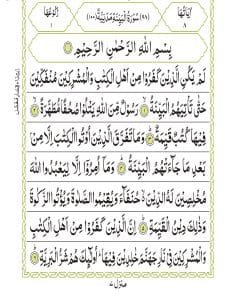 اٰیاتُھَا ٨ (٩٨) سُوْرَةُ الْبَيِّنَةِ مَدَنِيَّةٌ (١٠٠) رُکُوْعُھَا ١
بِسْمِ اللّٰهِ الرَّحْمٰنِ الرَّحِيْمِ
لَمْ يَكُنِ الَّذِيْنَ كَفَرُوْا مِنْ اَهْلِ الْكِتٰبِ وَالْمُشْرِكِيْنَ مُنْفَكِّيْنَ
حَتّٰى تَاْتِيَهُمُ الْبَيِّنَةُ ۙ١ رَسُوْلٌ مِّنَ اللّٰهِ يَتْلُوْا صُحُفًا مُّطَهَّرَةً ۙ٢
فِيْهَا كُتُبٌ قَيِّمَةٌ ؕ٣ وَمَا تَفَرَّقَ الَّذِيْنَ اُوْتُوا الْكِتٰبَ اِلَّا مِنْۢ
بَعْدِ مَا جَآءَتْهُمُ الْبَيِّنَةُ ؕ٤ وَمَاۤ اُمِرُوْۤا اِلَّا لِيَعْبُدُوا اللّٰهَ
مُخْلِصِيْنَ لَهُ الدِّيْنَ ۙ۬ حُنَفَآءَ وَيُقِيْمُوا الصَّلٰوةَ وَيُؤْتُوا الزَّكٰوةَ
وَذٰلِكَ دِيْنُ الْقَيِّمَةِ ؕ٥ اِنَّ الَّذِيْنَ كَفَرُوْا مِنْ اَهْلِ الْكِتٰبِ
وَالْمُشْرِكِيْنَ فِيْ نَارِ جَهَنَّمَ خٰلِدِيْنَ فِيْهَا ؕ اُولٰٓئِكَ هُمْ شَرُّ الْبَرِيَّةِ ؕ٦
منزل ٧